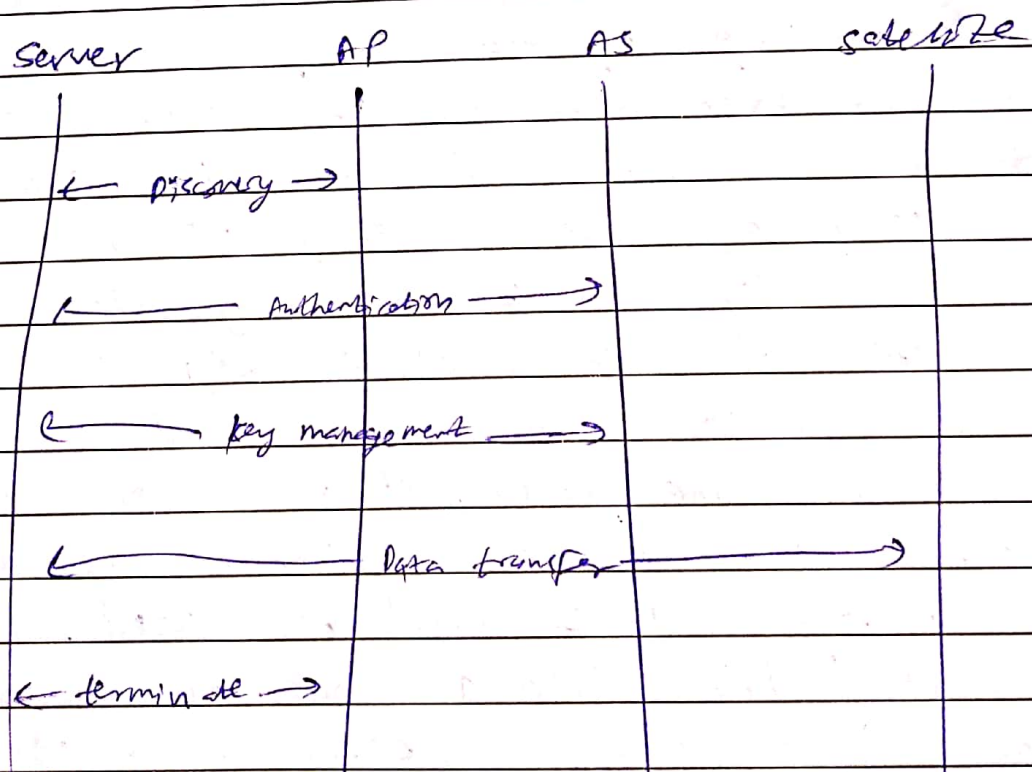 Server AP AS satellite
Discovery
Authentication
key management
Data transfer
terminate